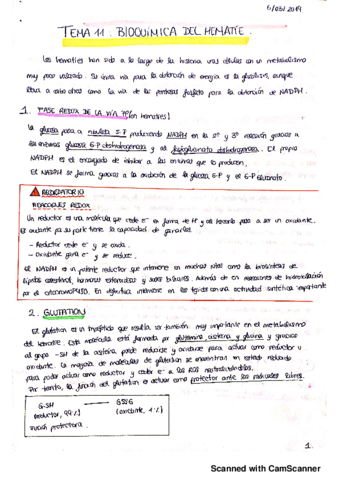 6/03/2019
TEMA 11. BIOQUÍMICA DEL HEMATÍE.
Los hematíes han sido a lo largo de la historia unas células con un metabolismo
muy poco valorado. Su única vía para la obtención de energía es la glucólisis, aunque
lleva a cabo otras como la vía de las pentosas fosfato para la obtención de NADPH.
1. FASE REDOX DE LA VÍA PP (en hematíes)
La glucosa pasa a ribulosa 5-P produciendo NADPH en la 2ª y 3ª reacción gracias a
las enzimas glucosa 6-P deshidrogenasa y al fosfogluconato deshidrogenasa. El propio
NADPH es el encargado de inhibir a las enzimas que lo producen.
El NADPH se forma gracias a la oxidación de la glucosa 6-P y el 6-P gluconato.
RECORDATORIO
REACCIONES REDOX
Un reductor es una molécula que cede e- en forma de H y al hacerlo pasa a ser un oxidante.
El oxidante por su parte tiene la capacidad de ganarlos.
- Reductor cede e- y se oxida.
- Oxidante gana e- y se reduce.
El NADPH es un potente reductor que interviene en muchas rutas como la biosíntesis de
lípidos, colesterol, hormonas esteroideas y sales biliares. Además de en reacciones de hidroxilación
por el citocromo P450. En definitiva interviene en los tejidos con una actividad sintética importante
2. GLUTATION
El glutation es un tripéptido que resulta ser también muy importante en el metabolismo
del hematíe. Esta molécula está formada por glutamina, cisteína y glicina y gracias
al grupo -SH de la cisteína, puede reducirse y oxidarse para actuar como reductor u
oxidante. La mayoría de moléculas de glutation se encuentran en estado reducido
para poder actuar como reductor y ceder e- a los ROS neutralizándolos.
Por tanto, la función del glutation es actuar como protector ante los radicales libres.
G-SH GSSG
(reductor, 99%) (oxidante, 1%)
función protectora
1.
Scanned with CamScanner